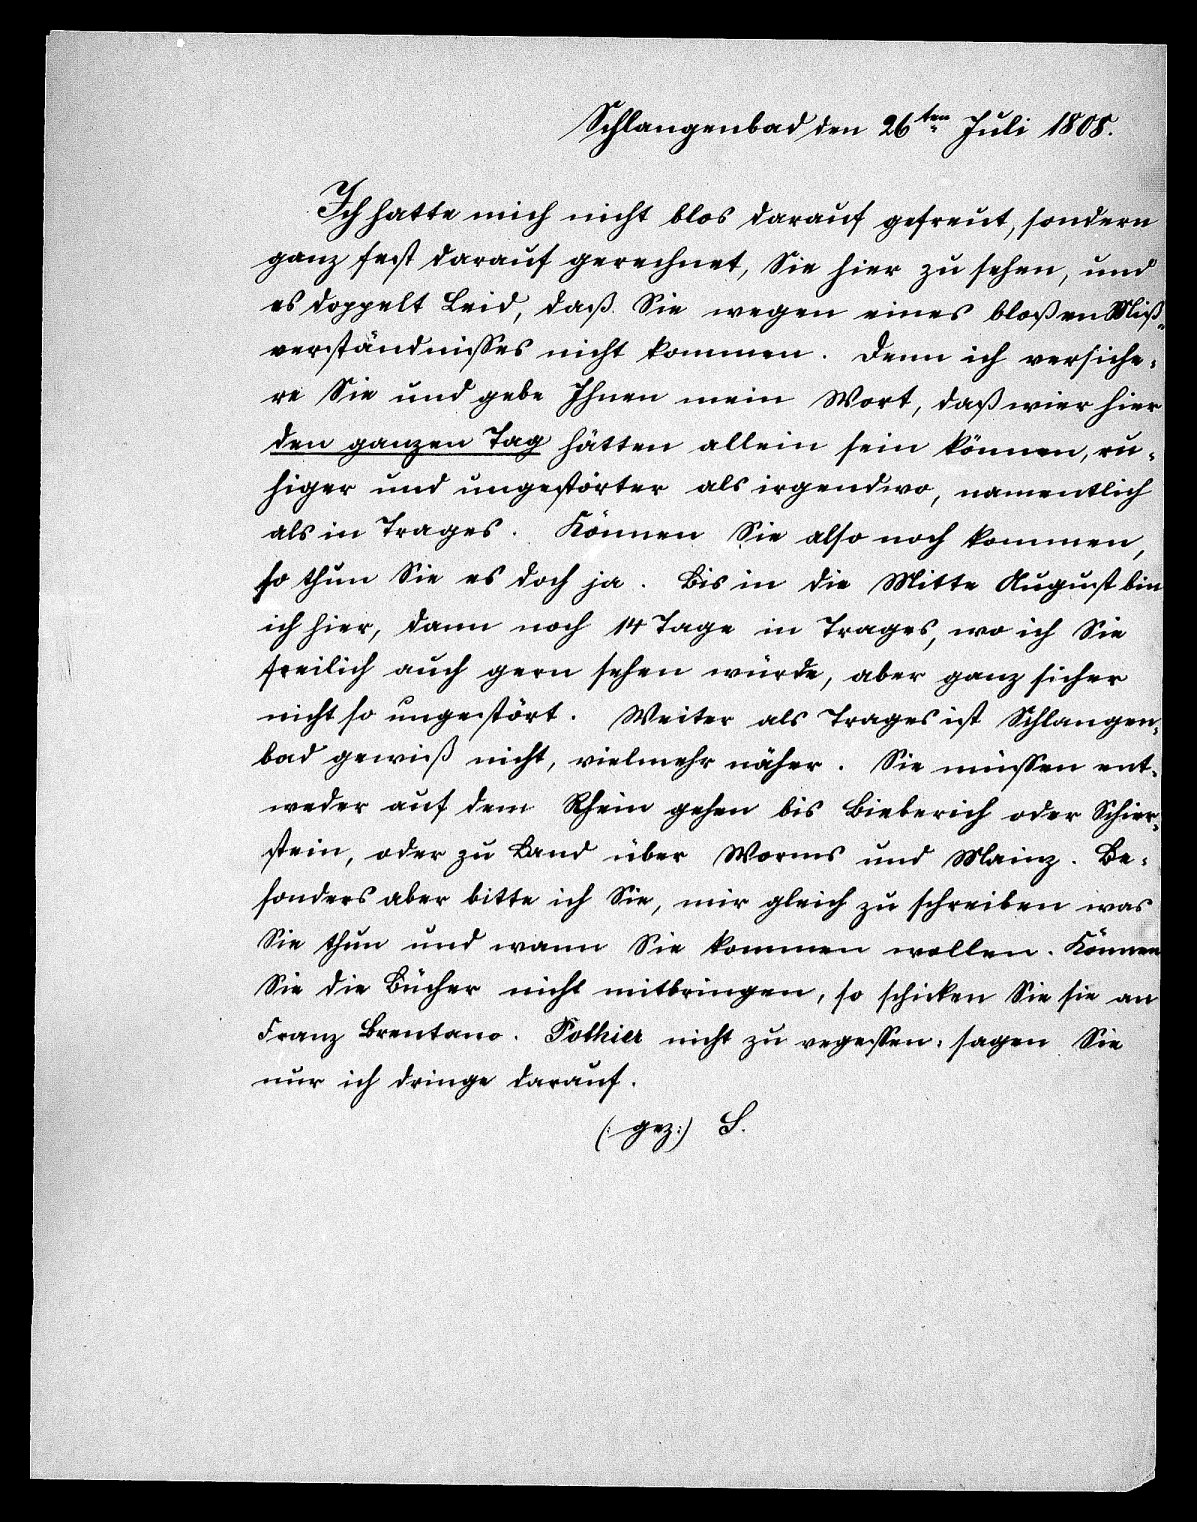 Schlangenbad den 26ten Juli 1808.
Ich hatte mich nicht blos darauf gefreut, sondern
ganz fest darauf gerechnet, Sie hier zu sehen, und
es doppelt Leid, daß Sie wegen eines bloßen Miß-
verständnisses nicht kommen. Denn ich versiche-
re Sie und gebe Ihnen mein Wort, daß wier hier
den ganzen Tag hätten allein sein können, ru-
higer und ungestörter als irgendwo, namentlich
als in Trages. Können Sie also noch kommen,
so thun Sie es doch ja. Bis in die Mitte August bin
ich hier, dann noch 14 Tage in Trages, wo ich Sie
freilich auch gern sehen würde, aber ganz sicher
nicht so ungestört. Weiter als Trages ist Schlangen-
bad gewiß nicht, vielmehr näher. Sie müssen ent-
weder auf dem Rhein gehen bis Bieberich oder Schier-
stein, oder zu Land über Worms und Mainz. Be-
sonders aber bitte ich Sie, mir gleich zu schreiben was
Sie thun und wann Sie kommen wollen. Können
Sie die Bücher nicht mitbringen, so schicken Sie sie an
Franz Brentano. Pothier nicht zu vegessen: sagen Sie
nur ich dringe darauf.
(: gez:) S.